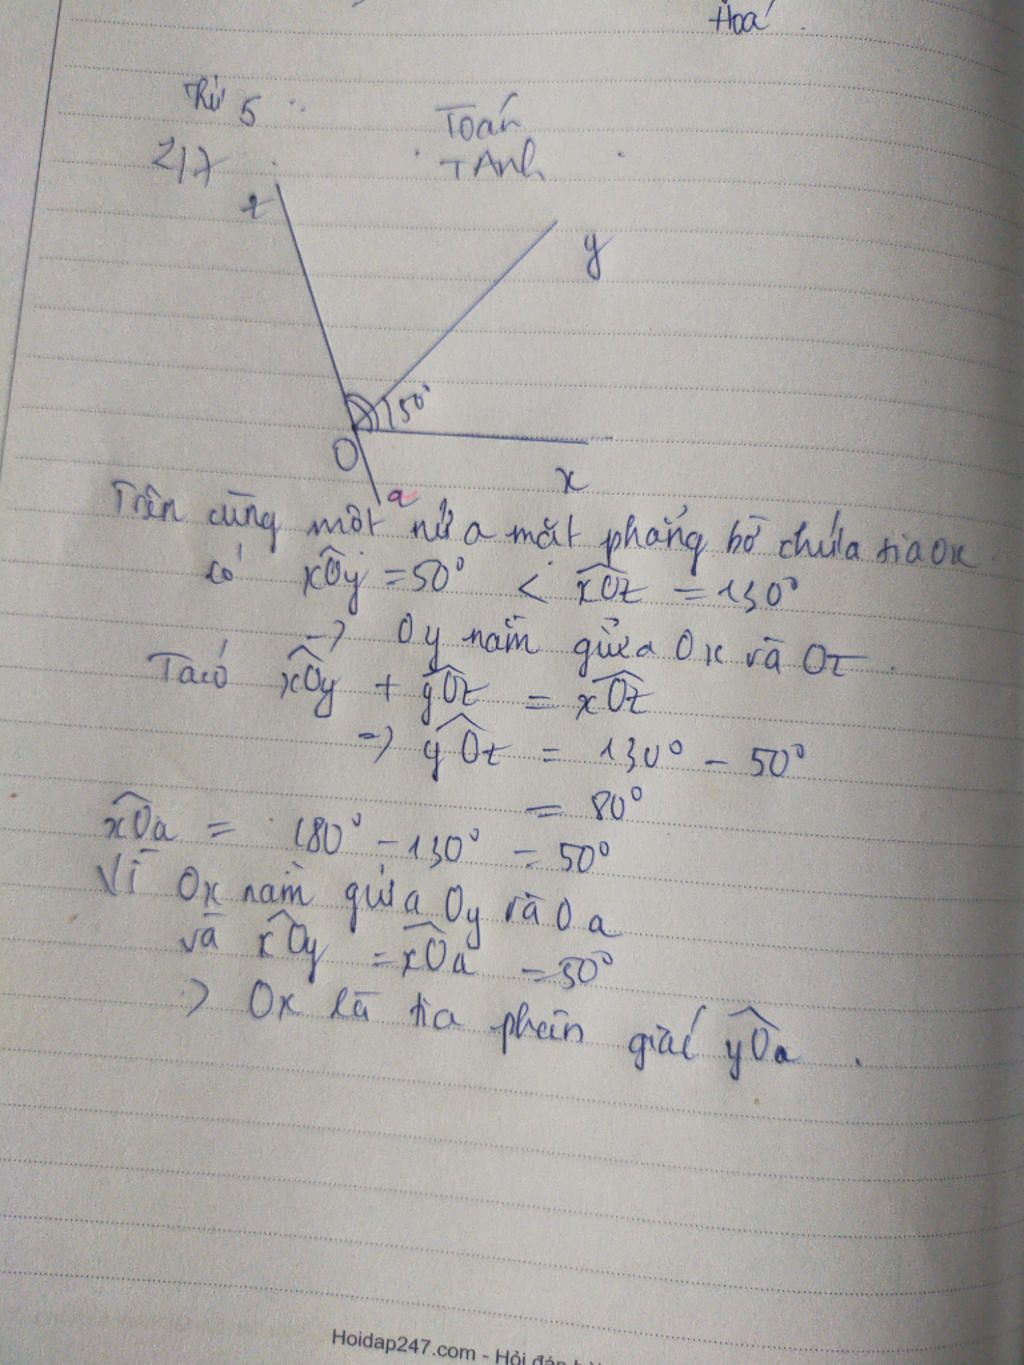 Hoá
Thứ 5
Toán
2/7
TAnh
z
y
50°
O
x
a
Trên cùng một nửa mặt phẳng bờ chứa tia Ox
có xOy = 50° < xOz = 130°
→ Oy nằm giữa Ox và Oz.
Ta có xOy + yOz = xOz
=> yOz = 130° - 50°
= 80°
xOa = 180° - 130° = 50°
Vì Ox nằm giữa Oy và Oa
và xOy = xOa = 50°
=> Ox là tia phân giác yOa.
Hoidap247.com - Hỏi đáp